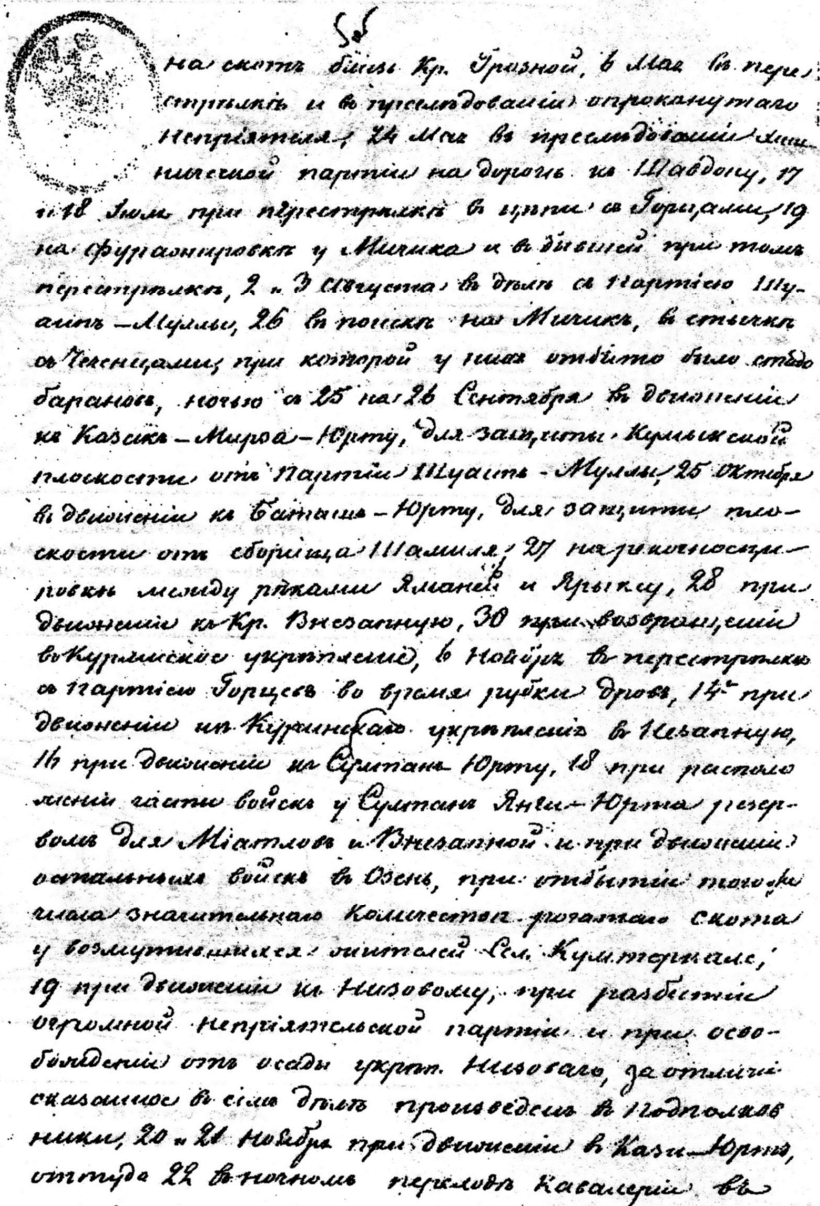 на скотъ близь Кр. Грозной, 6 Мая въ пере
стрѣлкѣ и въ преслѣдованіи опрокинутаго
непріятеля, 24 Мая въ преслѣдованіи
партіи на дорогѣ къ Шавдону, 17
и 18 Іюля при перестрѣлкѣ въ цѣпи съ Горцами, 19
на фуражировкѣ у Мичика и въ бывшей при томъ
перестрѣлкѣ, 2 и 3 Августа въ дѣлѣ съ партіею Шу-
аипъ-Муллы, 26 въ поискѣ на Мичикъ, въ стычкѣ
съ Чеченцами, при которой у нихъ отбито было стадо
барановъ, ночью съ 25 на 26 Сентября въ движеніи
къ Казакъ-Мирза-Юрту, для защиты Кумыкской
плоскости отъ партіи Шуаипъ-Муллы, 25 Октября
въ движеніи къ Баташъ-Юрту, для защиты пло-
скости отъ сборища Шамиля, 27 на рекогносци-
ровкѣ между рѣками Яманъ и Ярыксу, 28 при
движеніи къ Кр. Внезапную, 30 при возвращеніи
въ Куринское укрѣпленіе, 6 Ноября въ перестрѣлкѣ
съ партіею Горцевъ во время рубки дровъ, 14 при
движеніи изъ Куринскаго укрѣпленія въ Незапную,
16 при движеніи къ Султанъ Юрту, 18 при располо
женіи части войскъ у Султанъ Янги-Юрта резер-
вомъ для Міатловъ и Внезапной и при движеніи
остальныхъ войскъ въ Озень, при отбытіи того же
числа значительнаго количества рогатаго скота
у возмутившихся жителей Сел. Кумторкале,
19 при движеніи къ Низовому, при разбитіи
огромной непріятельской партіи и при осво-
божденіи отъ осады укрѣп. Низоваго, за отличіе
оказанное въ семъ дѣлѣ произведенъ въ Подполков
ники, 20 и 21 Ноября при движеніи въ Кази-Юртъ,
оттуда 22 въ ночномъ переходѣ кавалеріи въ